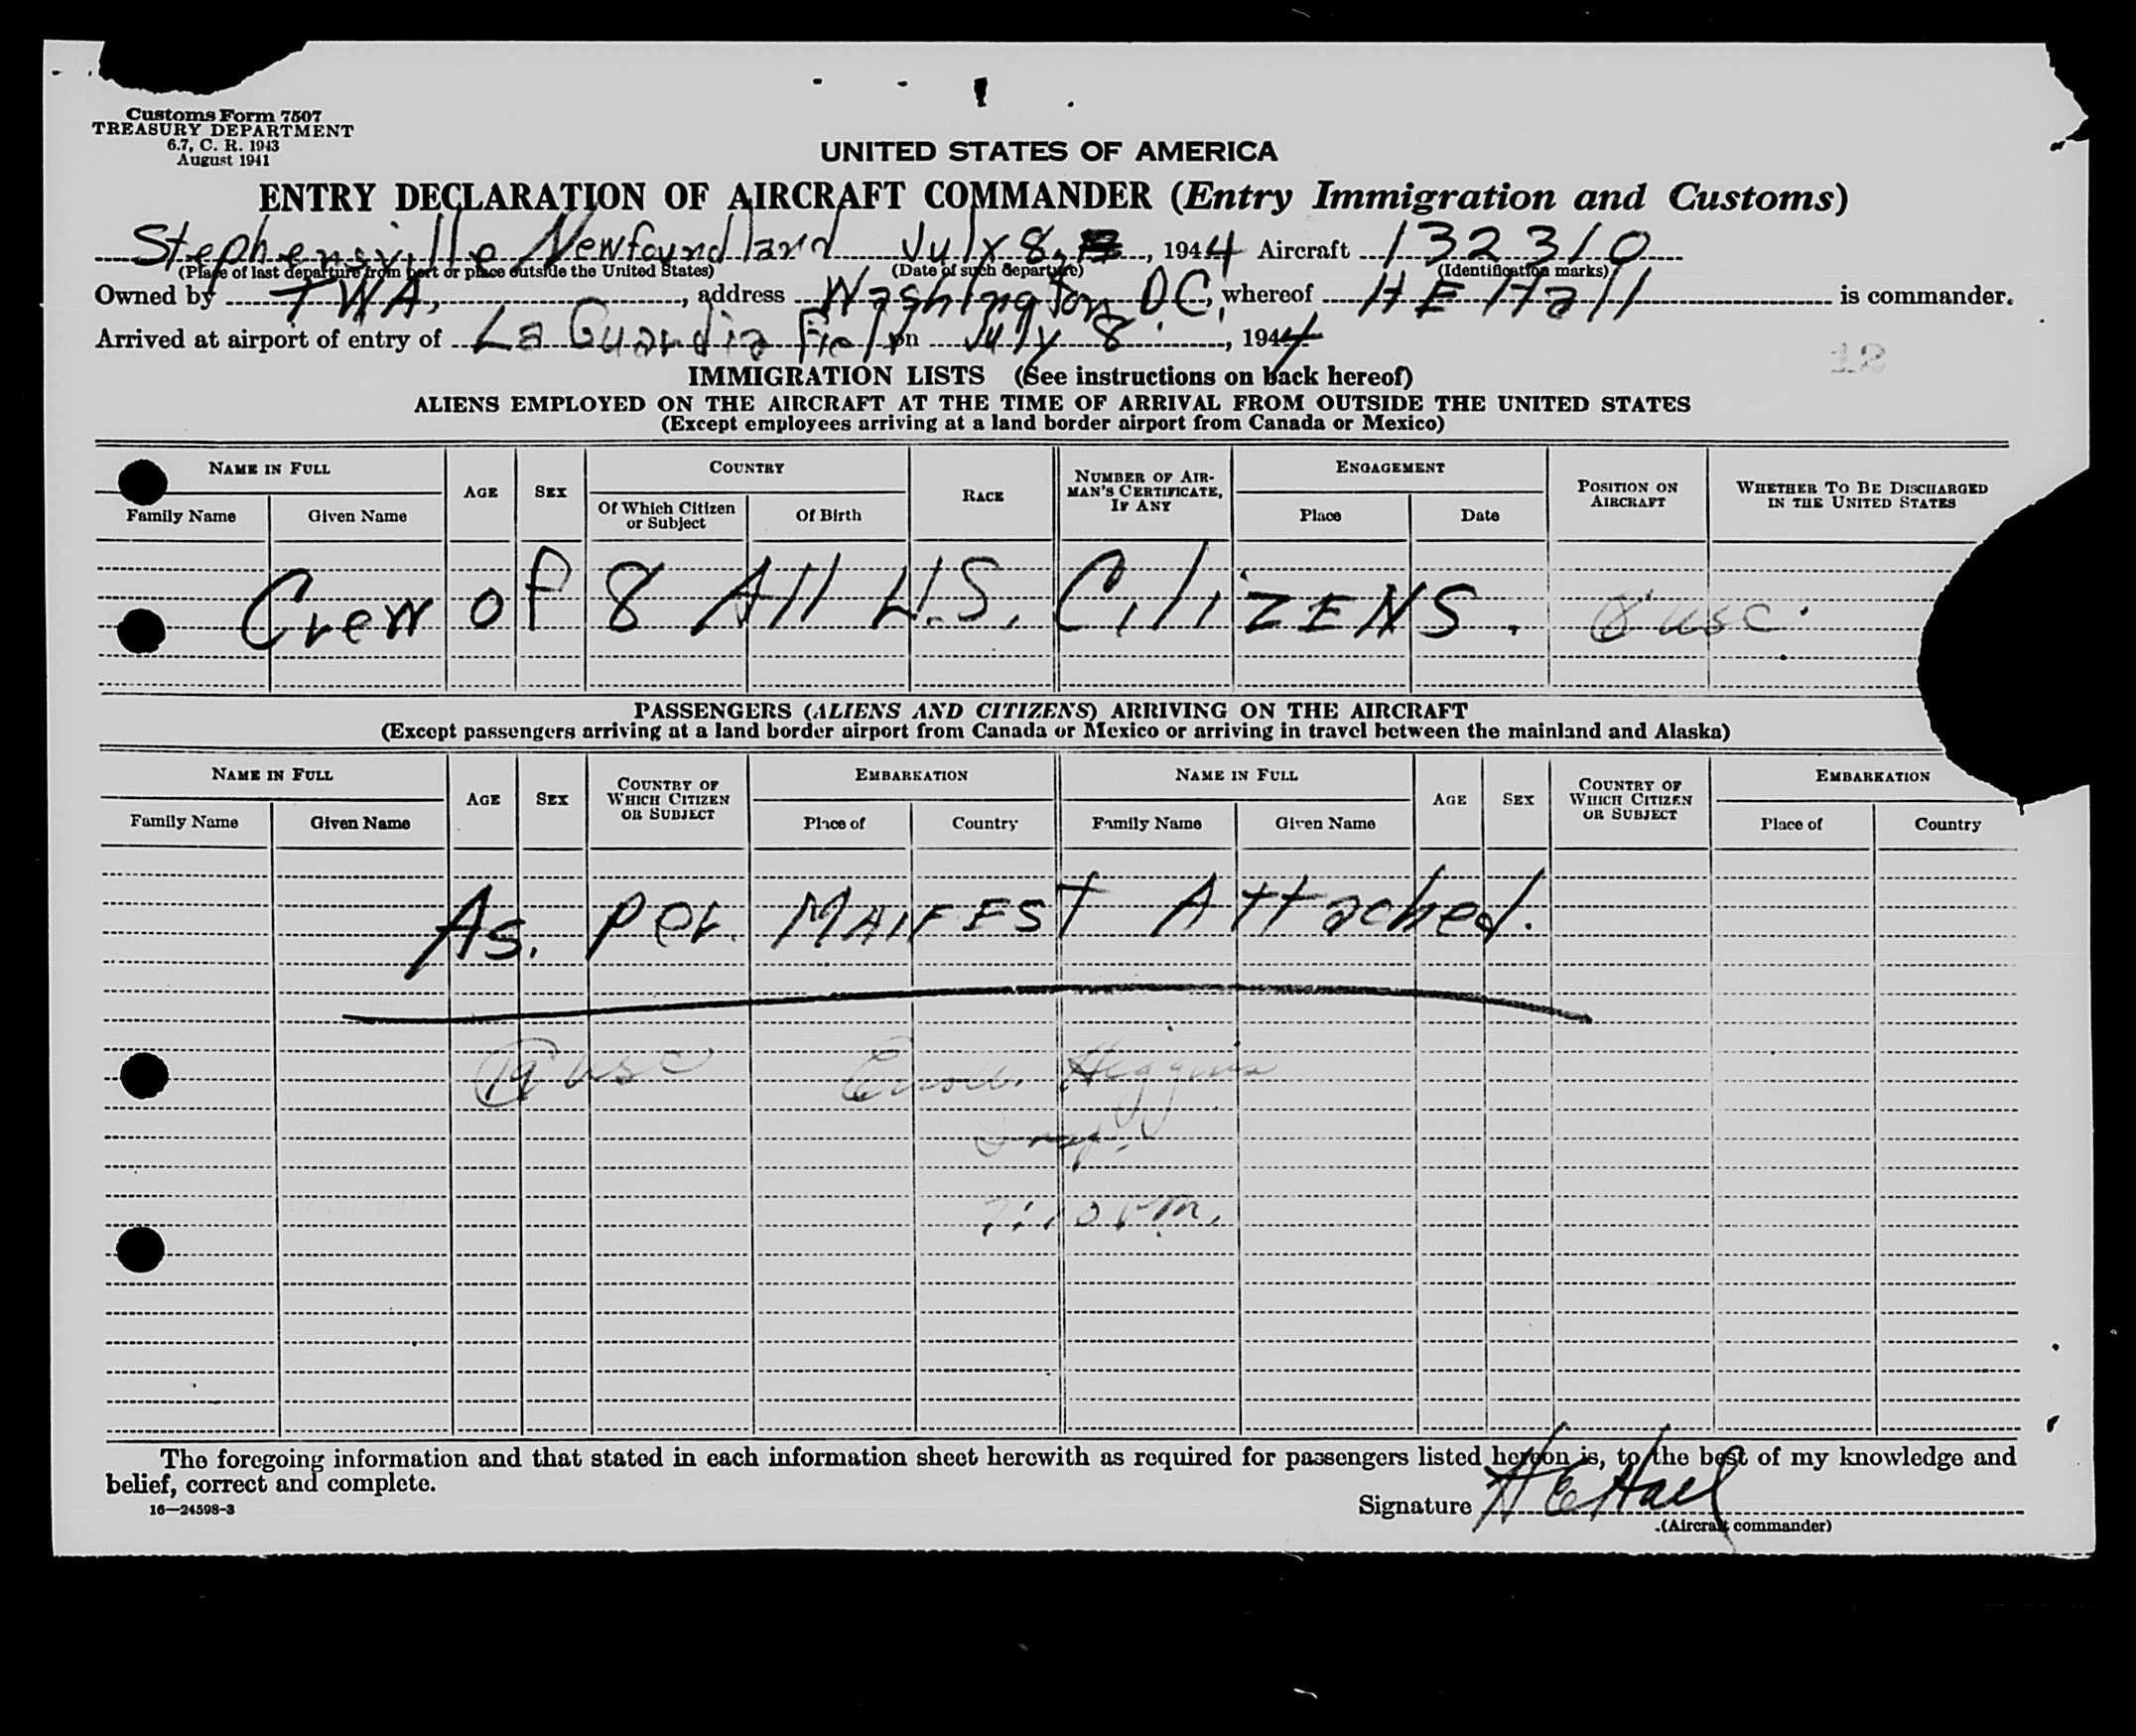 Customs Form 7507
TREASURY DEPARTMENT
6.7, C. R. 1943
August 1941
UNITED STATES OF AMERICA
ENTRY DECLARATION OF AIRCRAFT COMMANDER (Entry Immigration and Customs)
Stephensville Newfoundland July 8, , 1944 Aircraft 132310
(Place of last departure from port or place outside the United States) (Date of such departure) (Identification marks)
Owned by TWA, , address Washington DC, whereof H E Hall is commander.
Arrived at airport of entry of La Guardia Field on July 8 , 1944
12
IMMIGRATION LISTS (See instructions on back hereof)
ALIENS EMPLOYED ON THE AIRCRAFT AT THE TIME OF ARRIVAL FROM OUTSIDE THE UNITED STATES
(Except employees arriving at a land border airport from Canada or Mexico)
NAME IN FULL AGE SEX COUNTRY RACE NUMBER OF AIRMAN'S CERTIFICATE, IF ANY ENGAGEMENT POSITION ON AIRCRAFT WHETHER TO BE DISCHARGED IN THE UNITED STATES
Family Name Given Name Of Which Citizen or Subject Of Birth Place Date
Crew of 8 All U.S. Citizens. 8 usc.
PASSENGERS (ALIENS AND CITIZENS) ARRIVING ON THE AIRCRAFT
(Except passengers arriving at a land border airport from Canada or Mexico or arriving in travel between the mainland and Alaska)
NAME IN FULL AGE SEX COUNTRY OF WHICH CITIZEN OR SUBJECT EMBARKATION NAME IN FULL AGE SEX COUNTRY OF WHICH CITIZEN OR SUBJECT EMBARKATION
Family Name Given Name Place of Country Family Name Given Name Place of Country
As. per. MAIFEST Attached.
19 usc Higgins
Insp.
7:10 PM.
The foregoing information and that stated in each information sheet herewith as required for passengers listed hereon is, to the best of my knowledge and
belief, correct and complete.
16—24598-3
Signature H E Hall
(Aircraft commander)